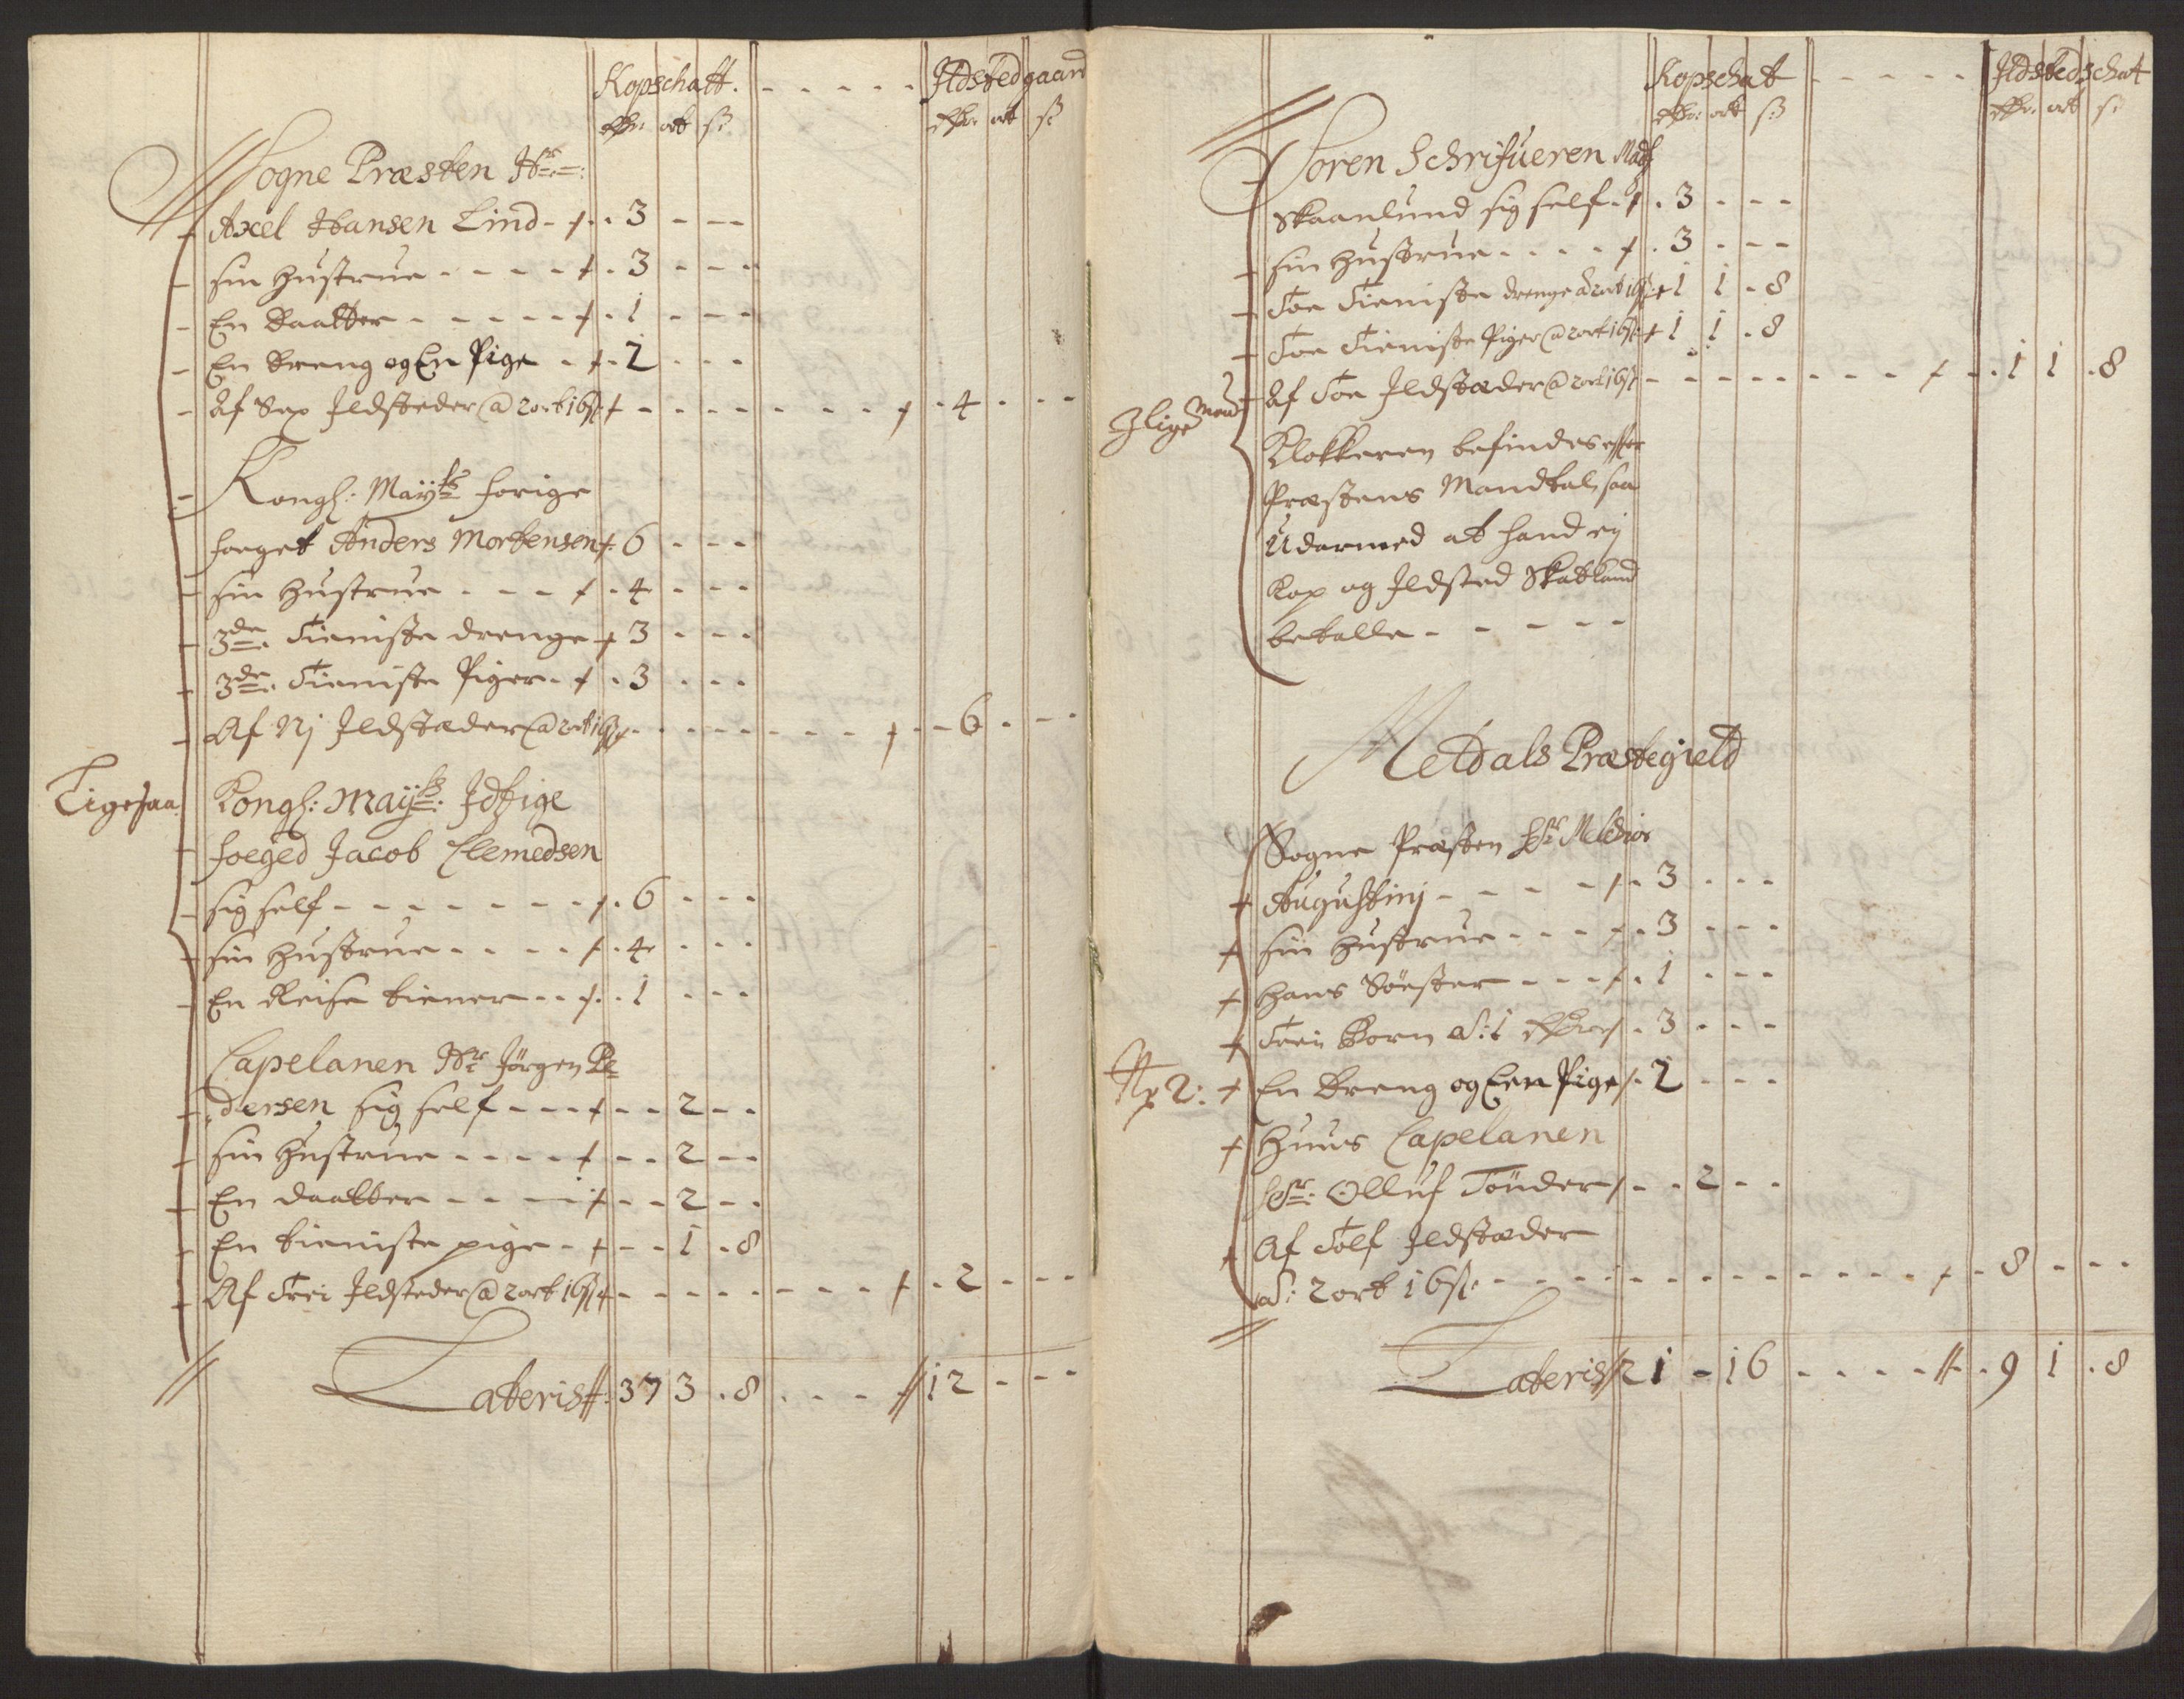 Kopschatt. - - - - - Ildstedgaard
Rdr: ort s: Rdr: ort s:
Sogne Præsten Hr:
Axel Hansen Lind - 3 - -
sin Hustrue - - - - 3 - - -
En Daatter - - - - - 1 - - -
En dreng og En Pige - 2 - - -
Af Sex Ildsteder @ 2 ort 16 s - - - - - 4 - - -
Kongl: Mayts forige
foeget Anders Mortensen 6 - - -
sin Hustrue - - - 4 - - -
3de Tieniste drenge 3 - - -
3de Tieniste Piger - 3 - - -
Af Nj Ildstæder @ 2 ort 16 s - - - - - 6 - - -
Ligesaa Kongl: Mayts: Idtzige
foeged Jacob Clemedsen
sig self - - - - - - - 6 - - -
sin Hustrue - - - - 4 - - -
En Reise tiener - - 1 - - -
Capelanen Hr Jörgen Pe
dersen sig self - - - - - 2 - -
sin Hustrue - - - - - - 2 - -
En daatter - - - - - 2 - -
En tieniste pige - - - 1 . 8
Af Trei Ildsteder @ 2 ort 16 s - - - - - 2 - - -
Lateris 37 3 . 8 . - - - 12 - - -
Kopschat - - - - - Ildstedschat
Rdr: ort s: Rdr: ort s:
Soren Schrifueren Madtz
Skaanlund sig self - 3 - - -
sin Hustrue - - - - 3 - - -
Toe Tieniste drenge a 2 ort 16 s 1 1 - 8
Toe Tieniste Piger @ 2 ort 16 s 1 1 . 8
Af Toe Ildstæder @ 2 ort 16 s - - - - - - - 1 1 . 8
Klokkeren befindes efter
Præstens Mandtal, saa
Udarmed at hand ej
Kop og Ildsted Skat kand
betalle - - - - -
Meldals Præstegield
Sogne Præsten Hr Melchior
Augustinj - - - - - 3 - - -
sin Hustrue - - - 3 - - -
Hans Söster - - - 1 - - -
Trei Børn a: 1 Rdr 3 - - -
Np 2: En dreng og Een Pige 2 - - -
Huus Capelanen
Hr: Olluf Tönder - - 2 - -
Af Tolf Ildstæder
a: 2 ort 16 s: - - - - - - - - - 8 - - -
Lateris 21 - 16 - - - - 9 1 . 8